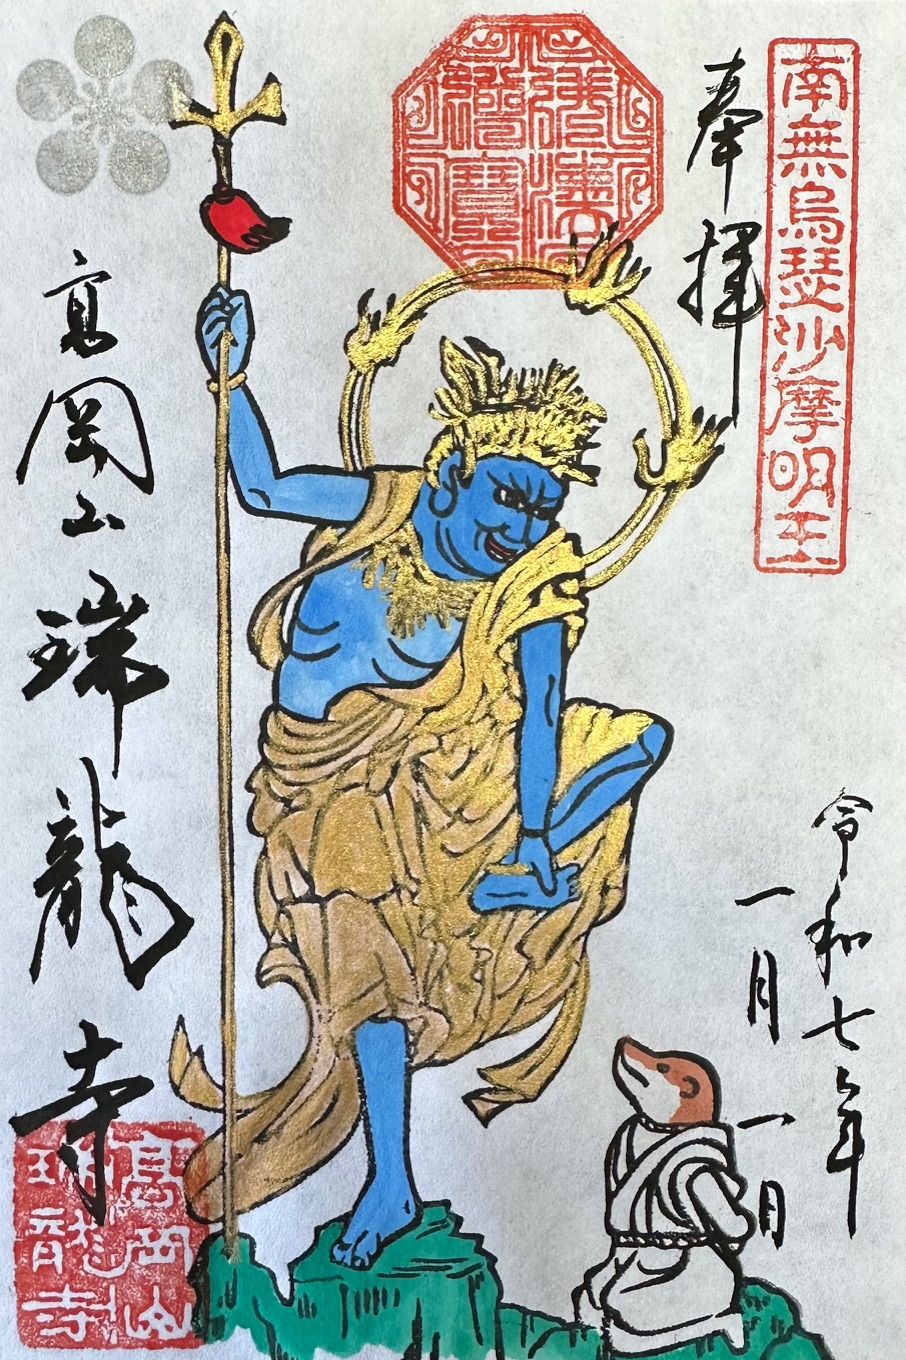 南無烏瑟沙摩明王
奉拝
令和七年
一月一日
高岡山瑞龍寺
高岡山
瑞龍寺